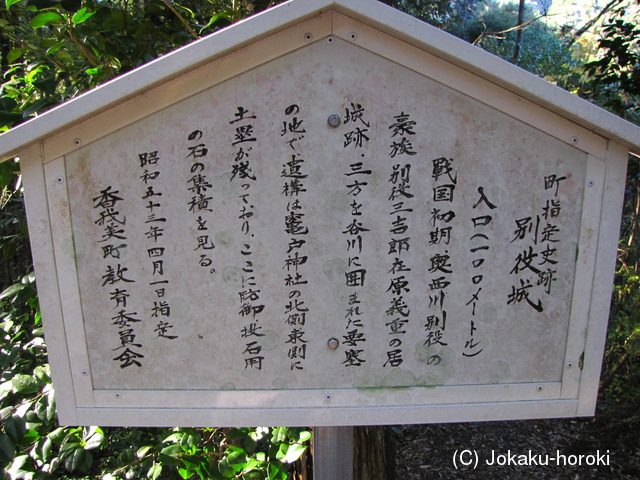 町指定史跡
別役城
入口(一〇〇メートル)
戦国初期、奥西川別役の
豪族別役三吉郎在原義重の居
城跡、三方を谷川に囲まれた要塞
の地で遺構は竃戸神社の北側東側に
土塁が残っており、ここに防御投石用
の石の集積を見る。
昭和五十三年四月一日指定
香我美町教育委員会
(C) Jokaku-horoki